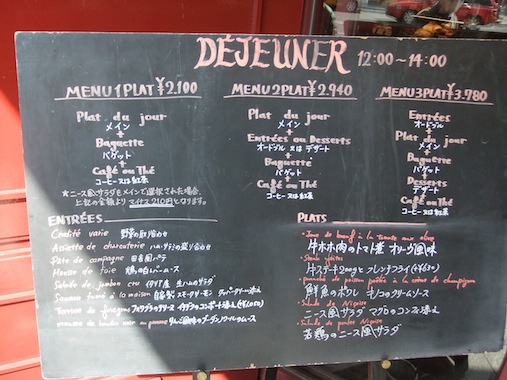 DÉJEUNER 12:00~14:00
MENU 1PLAT ¥2.100
Plat du jour
メイン
+
Baguette
バゲット
+
Café ou Thé
コーヒー又は紅茶
※ニース風サラダをメインで選択された場合、
上記の金額より マイナス210円となります。
MENU 2PLAT ¥2.940
Plat du jour
メイン
+
Entrées ou Desserts
オードブル 又は デザート
+
Baguette
バゲット
+
Café ou Thé
コーヒー又は紅茶
MENU 3PLAT ¥3.780
Entrées
オードブル
+
Plat du jour
メイン
+
Baguette
バゲット
+
Desserts
デザート
+
Café ou Thé
コーヒー又は紅茶
ENTRÉES
varie 野菜の取り合わせ
Assiette de charcuterie ハム、の盛り合わせ
Pâte de campagne 田舎風パテ
de foie 鶏の白レバームース
Salade de jambon cru イタリア産 生ハムのサラダ
fumé à la maison 自家製スモークサーモン
Terrine de フォアグラのテリーヌ イチヂクのコンポート添え
boudin noir りんご風味のブーダンノワールのムース
PLATS
Joue de boeuf à la tomate aux olives
牛ホホ肉のトマト煮 オリーヴ風味
Steak frites
牛ステーキ200gと フレンチフライ(+¥630)
poisson poêlée à la crème de champignon
鮮魚のポワレ キノコのクリームソース
Salade de Niçoise
ニース風サラダ マグロのコンフィ添え
Salade de poulet Niçoise
若鶏のニース風サラダ